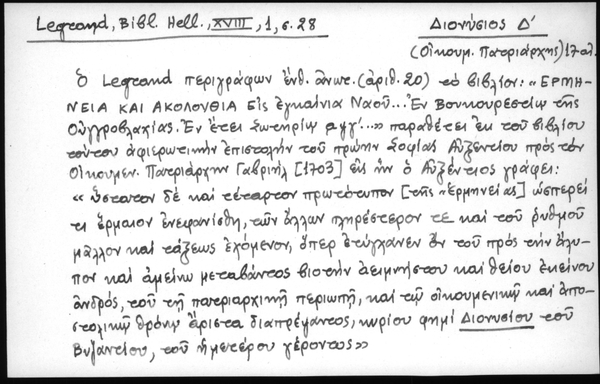 Legrand, Bibl Hell., XVIII, 1, σ. 28
Διονύσιος Δ'
(Οἰκουμ. Πατριάρχης) 17 αἰ.
Ὁ Legrand περιγράφων ἐνθ. ἄνωτ. (ἀριθ. 20) τὸ βιβλίον: «ΕΡΜΗ-
ΝΕΙΑ ΚΑΙ ΑΚΟΛΟΥΘΙΑ Εἰς ἐγκαίνια Ναοῦ... Ἐν Βουκουρεστίῳ τῆς
Οὐγγροβλαχίας. Ἐν ἔτει Σωτηρίῳ αψγ'...» παραθέτει ἐκ τοῦ βιβλίου
τούτου ἀφιερωτικὴν ἐπιστολὴν τοῦ πρώην Σοφίας Αὐξεντίου πρὸς τὸν
Οἰκουμεν. Πατριάρχην Γαβριὴλ [1703] εἰς ἣν ὁ Αὐξέντιος γράφει:
«ὕστατον δὲ καὶ τέταρτον πρωτότυπον [τῆς «Ἑρμηνείας] ὡσπερεί
τι ἕρμαιον ἐνεφανίσθη, τῶν ἄλλων πληρέστερον τε καὶ τοῦ ῥυθμοῦ
μᾶλλον καὶ τάξεως ἐχόμενον, ὅπερ ἐτύγχανεν ὂν τοῦ πρὸς τὴν ἄλυ-
πον καὶ ἀμείνω μεταβάντος βιοτὴν ἀειμνήστου καὶ θείου ἐκείνου
ἀνδρός, τοῦ τῇ πατριαρχικῇ περιωπῇ, καὶ τῷ οἰκουμενικῷ καὶ ἀπο-
στολικῷ θρόνῳ ἄριστα διαπρέψαντος, κυρίου φημὶ Διονυσίου τοῦ
Βυζαντίου, τοῦ ἡμετέρου γέροντος»